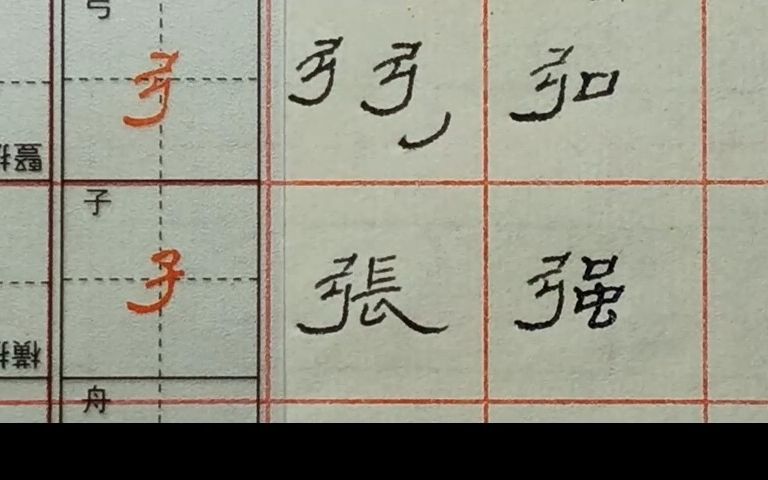 弓
弓 弓 弓 弘
子
子 張 强
舟